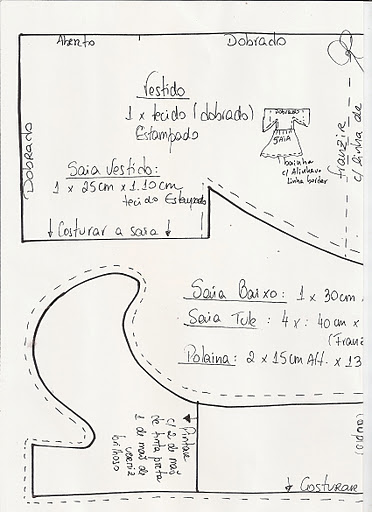 Aberto
Dobrado
Dobrado
Vestido
1 x tecido (dobrado)
Estampado
SAIA
bainha
c/ Alinhavo
Linha bordar
franzir
c/ linha de
Saia Vestido:
1 x 25cm x 1.10cm
tecido Estampado
↓ Costurar a saia ↓
Saia Baixo: 1 x 30cm
Saia Tule: 4 x: 40cm x
(Franz
Polaina: 2 x 15cm Alt. x 13
Pintar
c/ 2 de mão
de tinta preta
1 de mão de
verniz
brilhoso
↓ Costurar